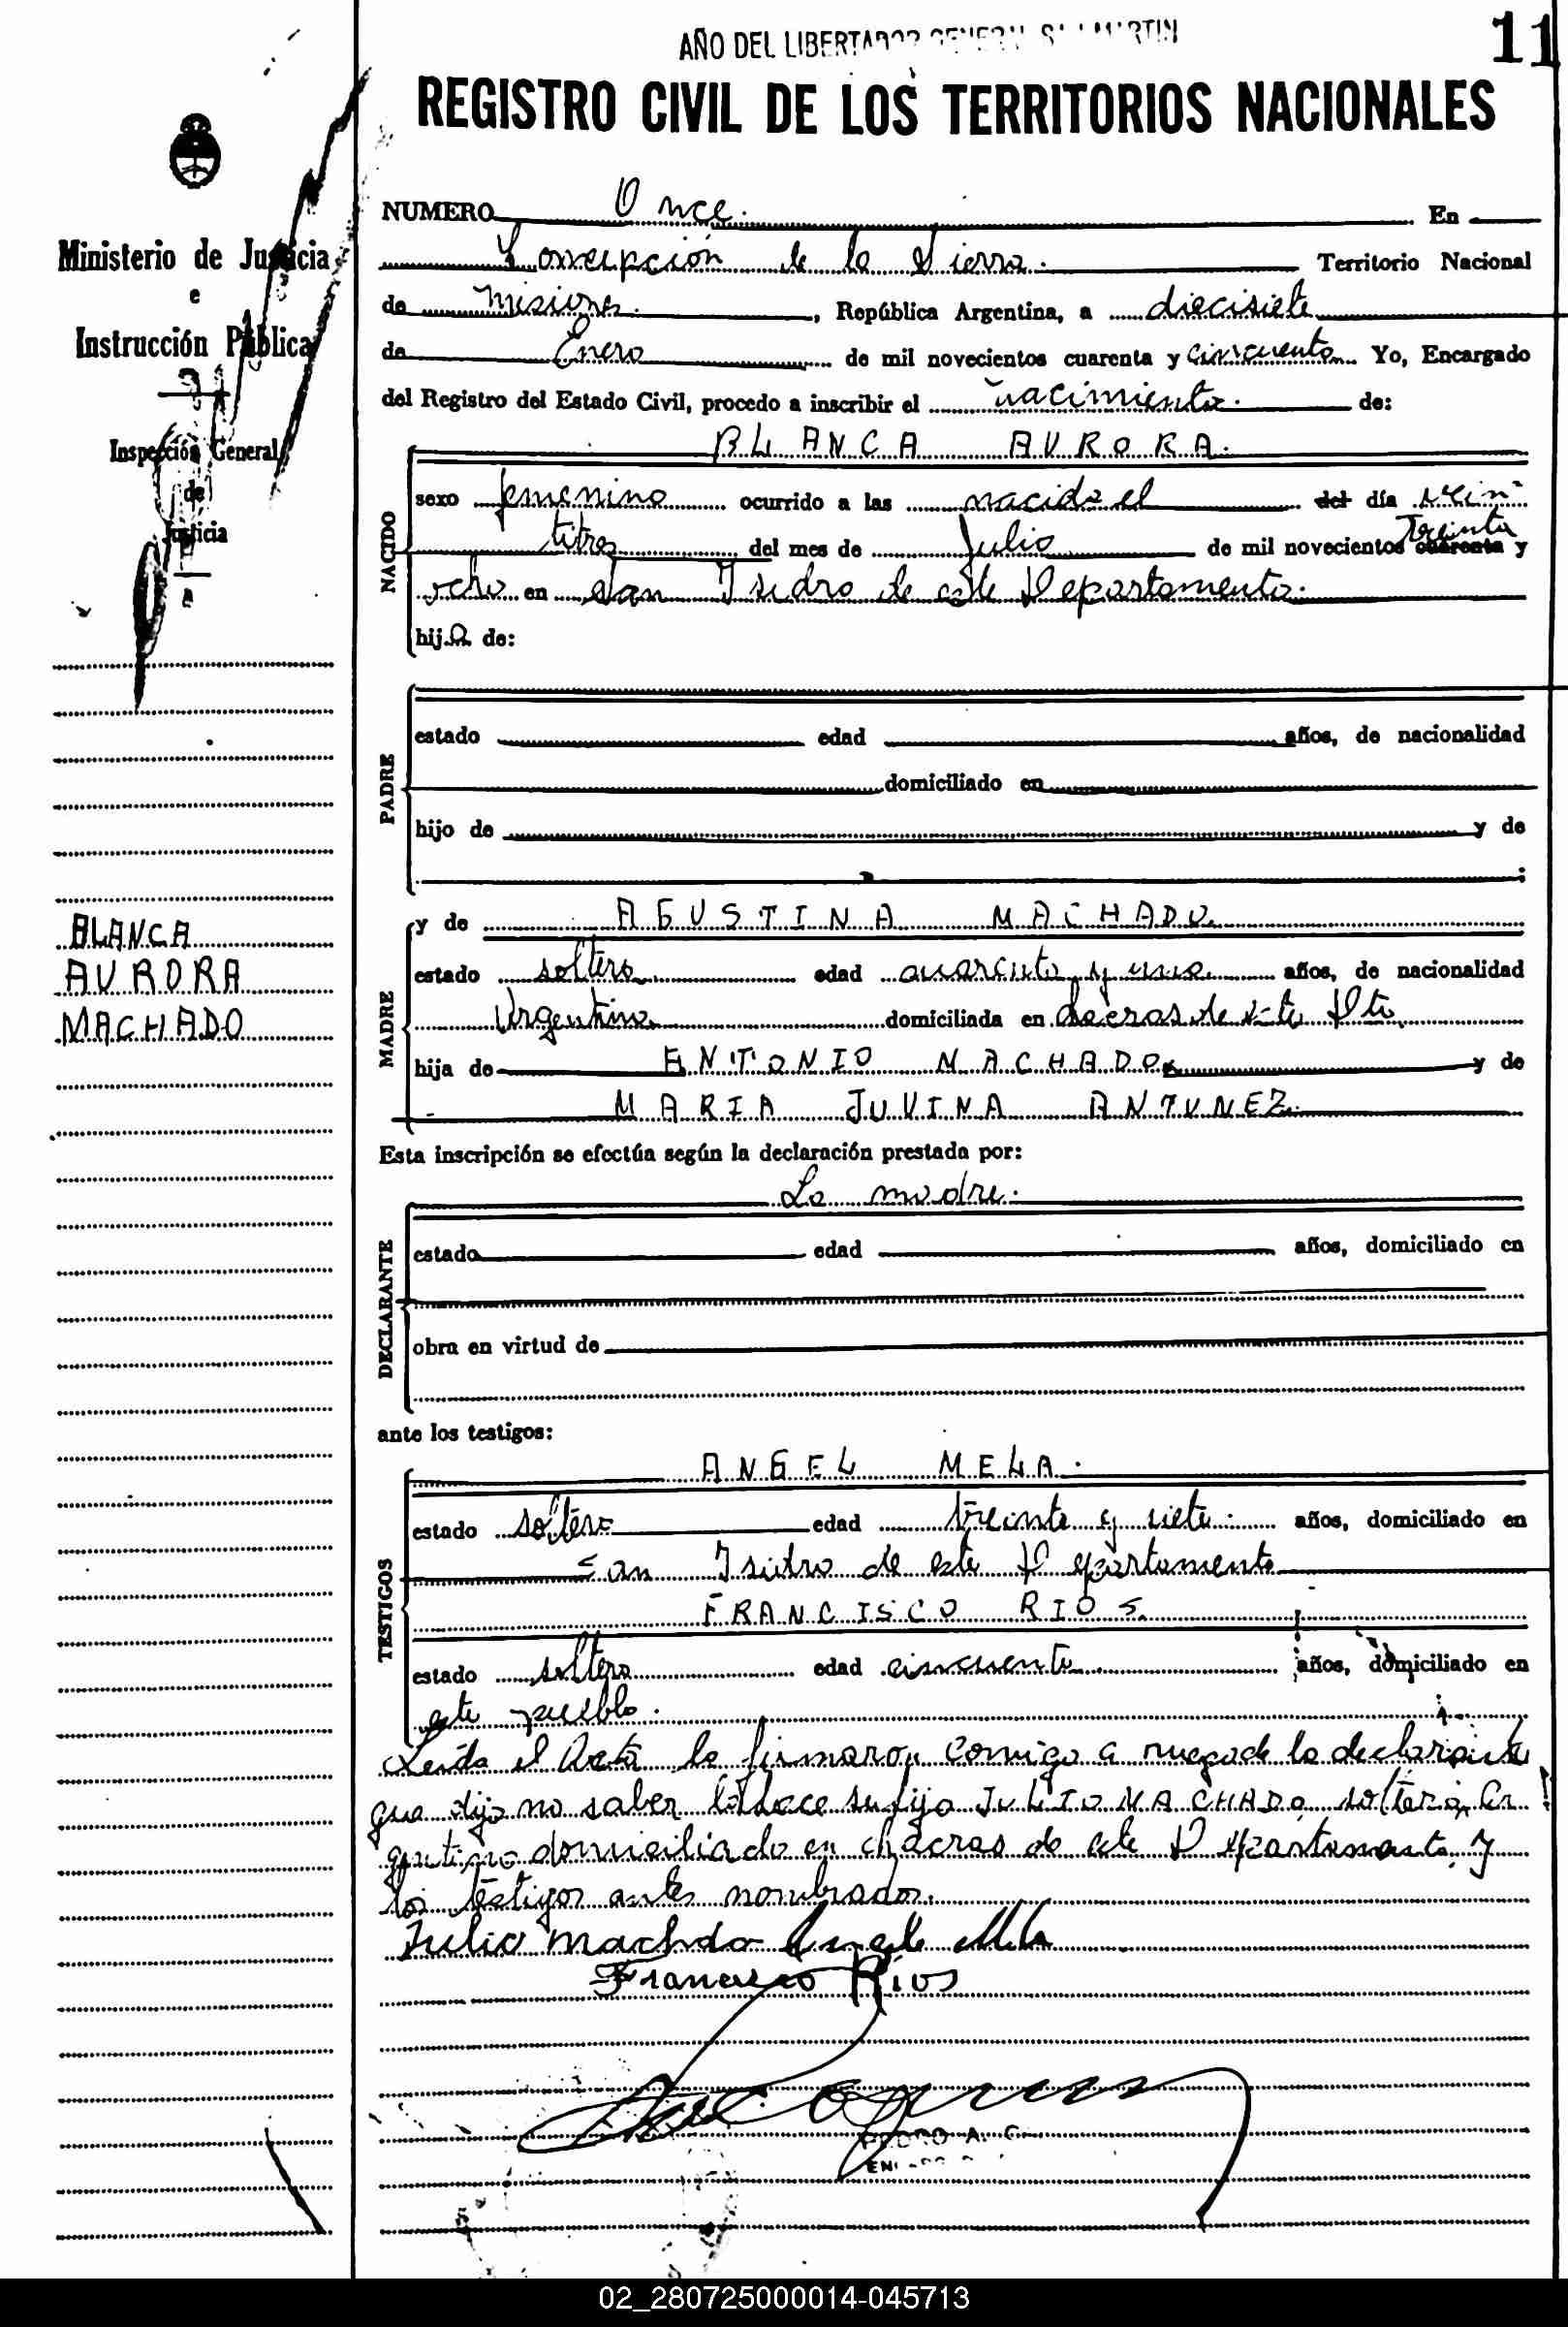 AÑO DEL LIBERTADOR GENERAL SAN MARTIN
11
REGISTRO CIVIL DE LOS TERRITORIOS NACIONALES
Ministerio de Justicia
e
Instrucción Pública
Inspección General
de
Justicia
BLANCA
AURORA
MACHADO
NUMERO Once. En
Concepción de la Sierra. Territorio Nacional
de Misiones., República Argentina, a diecisiete
de Enero de mil novecientos cuarenta y cincuenta Yo, Encargado
del Registro del Estado Civil, procedo a inscribir el nacimiento. de:
BLANCA AURORA.
NACIDO
sexo femenino ocurrido a las nacida el del día vein
titres del mes de Julio de mil novecientos cuarenta Treinta y
ocho en San Isidro de este Departamento.
hija de:
PADRE
estado edad años, de nacionalidad
domiciliado en
hijo de y de
;
MADRE
y de AGUSTINA MACHADO.
estado soltera edad cuarenta y una años, de nacionalidad
Argentina domiciliada en chacras de este Dto.
hija de ANTONIO MACHADO y de
MARIA JUVINA ANTUNEZ.
Esta inscripción se efectúa según la declaración prestada por:
La madre.
DECLARANTE
estado edad años, domiciliado en
obra en virtud de
ante los testigos:
TESTIGOS
ANGEL MELA.
estado soltero edad treinta y siete. años, domiciliado en
San Isidro de este Departamento
FRANCISCO RIOS.
estado soltero edad cincuenta años, domiciliado en
este pueblo.
Leída el Acta la firmaron conmigo a ruego de la declarante
que dijo no saber lo hace su hijo JULIO MACHADO, soltero, Ar
gentino domiciliado en chacras de este Departamento, y
los testigos antes nombrados.
Julio Machdo Angel Mela
Francisco Rios
PEDRO A.
02_280725000014-045713